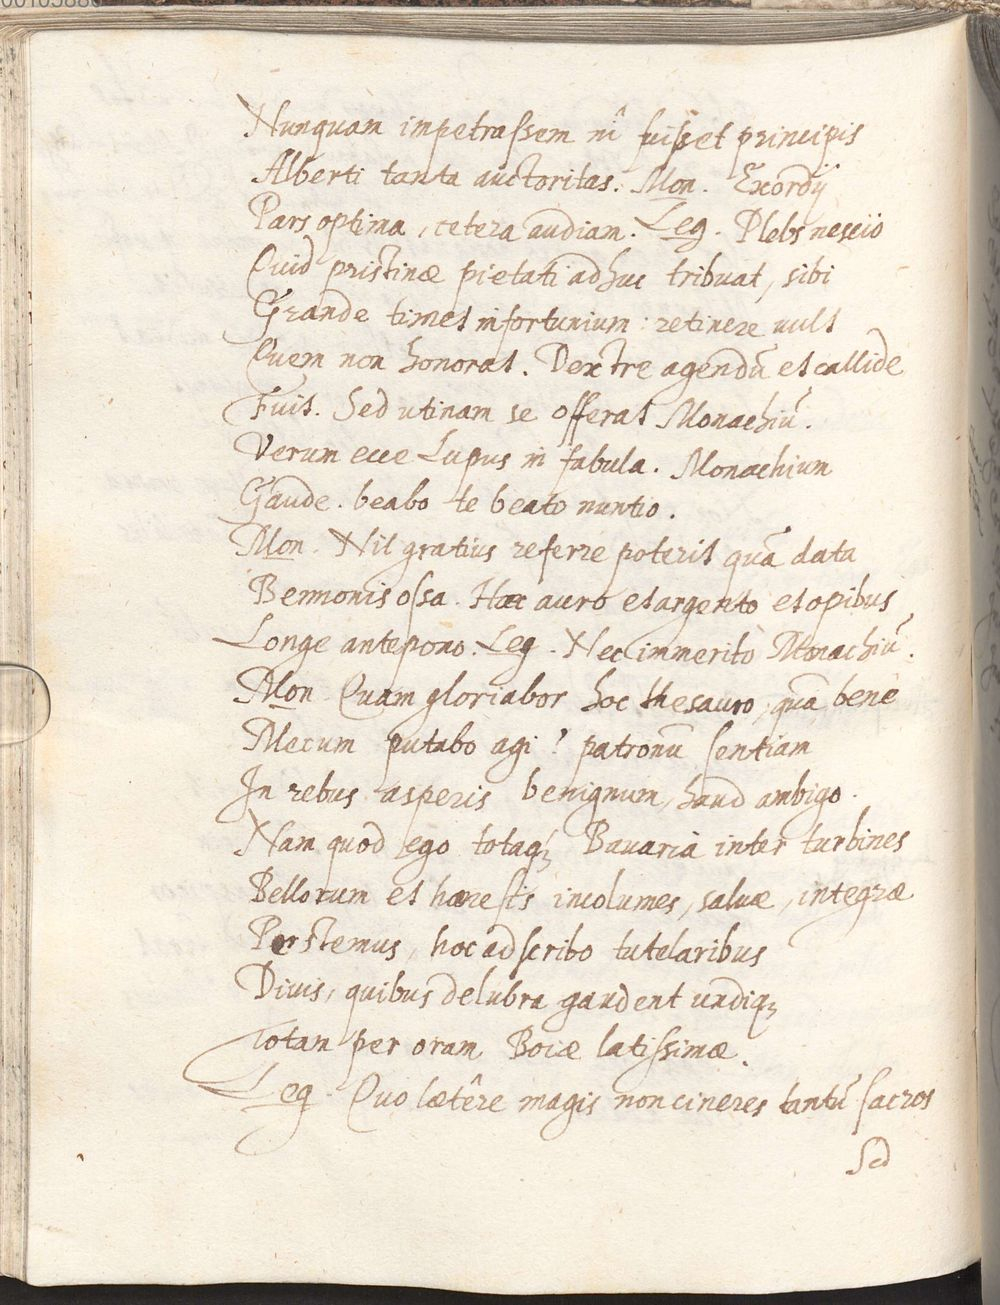 Nunquam impetrassem nî fuisset principis
Alberti tanta auctoritas. Mon. Exordij
Pars optima, cetera audiam. Leg. Plebs nescio
Quid pristinæ pietati adhuc tribuat, sibi
Grande timet infortunium: retinere uult
Quem non honorat. Dextre agendũ et callide
Fuit. Sed utinam se offerat Monachiũ.
Verum ecce Lupus in fabula. Monachium
Gaude. beabo te beato nuntio.
Mon. Nil gratius referre poterit quã data
Bennonis ossa. Hæc auro et argento et opibus
Longe antepono. Leg. Nec immeritò Monachiũ.
Mon Quam gloriabor hoc thesauro, quã bene
Mecum putabo agi? patronũ sentiam
In rebus asperis benignum, haud ambigo.
Nam quod ego totaq; Bauaria inter turbines
Bellorum et hæresis incolumes, saluæ, integræ
Perstemus, hoc adscribo tutelaribus
Diuis, quibus delubra gaudent undiq;
Totam per oram Boiæ latissimæ.
Leg. Quo lætêre magis non cineres tantũ sacros
Sed